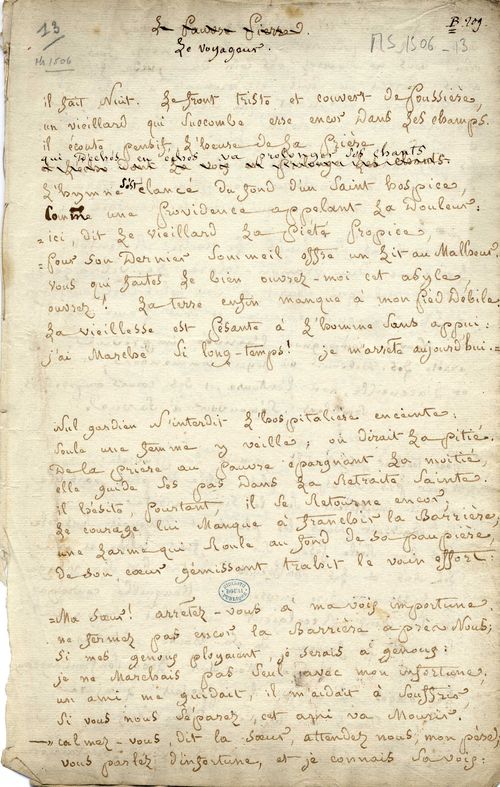 13
Ms 1506
B 709
MS 1506-13
Le Pauvre Pierre.
Le voyageur.
il fait Nuit. Le front triste, et couvert de Poussière,
un vieillard qui succombe erre encor dans Les champs.
il écoute pensif, L'heure de La Prière
qui D'échos en échos va prolonger ses chants
L'hymne s'est élancé du fond d'un Saint hospice,
Comme une Providence appelant La Douleur :
= ici, dit Le vieillard La Piété Propice,
= Pour son Dernier Sommeil offre un Lit au Malheur.
vous qui faites Le bien ouvrez-moi cet asyle,
ouvrez ! La terre enfin manque à mon Pied Débile
La vieillesse est Pésante à L'homme sans appui :
j'ai Marché Si long-temps ! je m'arrète aujourd'hui. =
Nul gardien N'interdit L'hospitalière enceinte :
Seule une femme y veille ; on dirait La Pitié.
De La Prière au Pauvre épargnant La moitié,
elle guide Ses pas Dans La Retraite Sainte.
il hésite, Pourtant, il se Retourne encor,
Le courage lui Manque à franchir La Barrière,
une Larme qui Roule au fond de Sa paupière,
de son cœur gémissant trahit le vain effort :
BIBLIOTH. DOUAI PUBLIQUE
= Ma Sœur ! arrètez-vous à ma voix importune
ne fermez pas encor la Barrière après Nous ;
Si mes genoux ployaient, je serais à genoux :
je ne Marchais pas Seul avec mon infortune,
un ami me guidait, il m'aidait à Souffrir,
Si vous nous Séparez, cet ami va Mourir.
— calmez-vous, dit la Sœur, attendez nous, mon père,
vous parlez d'infortune, et je connais Sa voix :